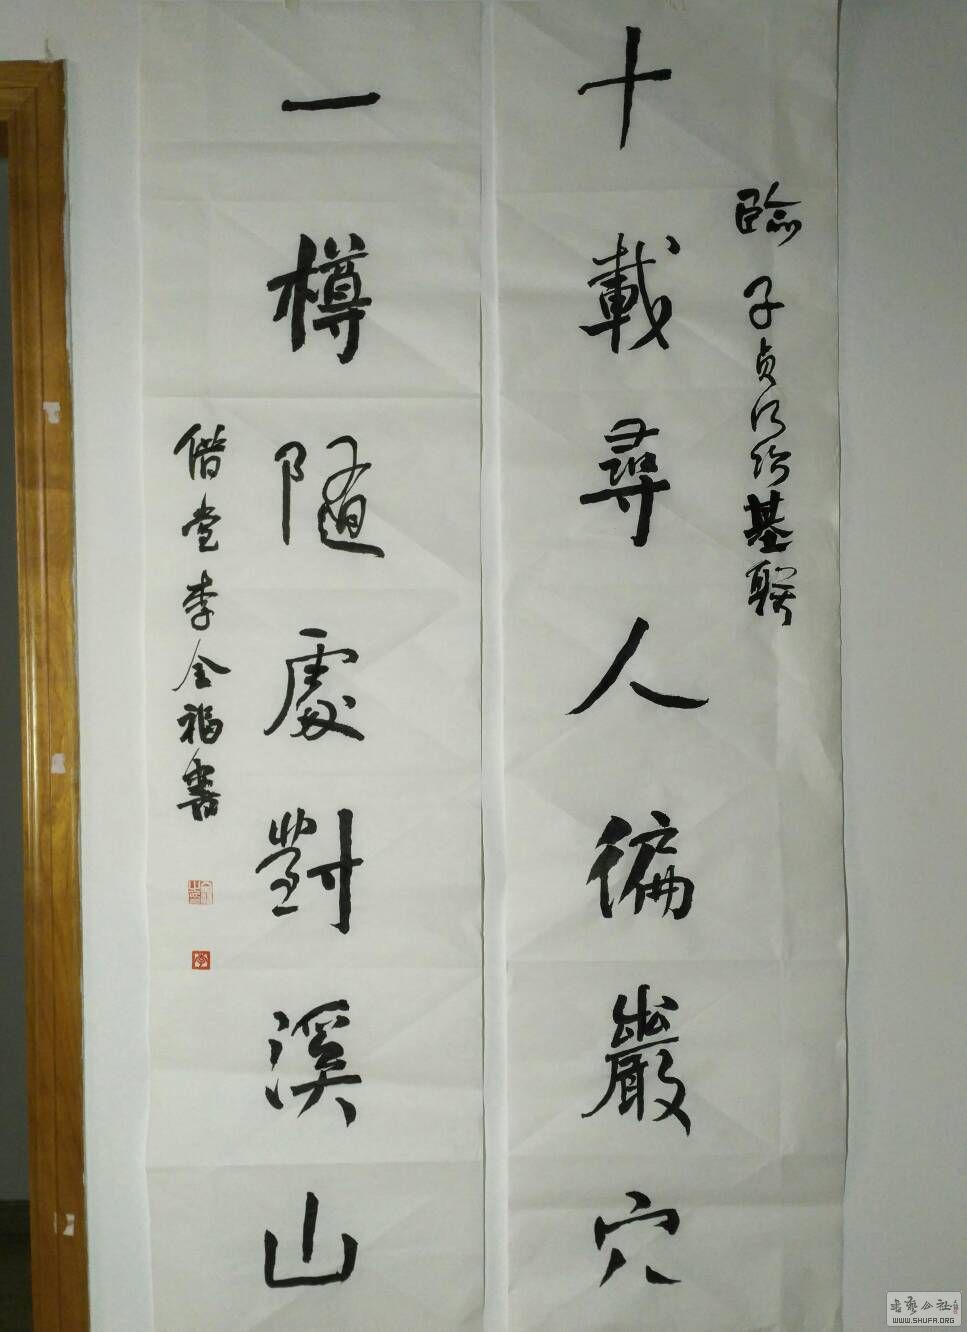 臨子貞行給基聯
十載尋人徧巖穴
一樽隨處對溪山
偕堂李全福書
書藝公社
WWW.SHUFA.ORG